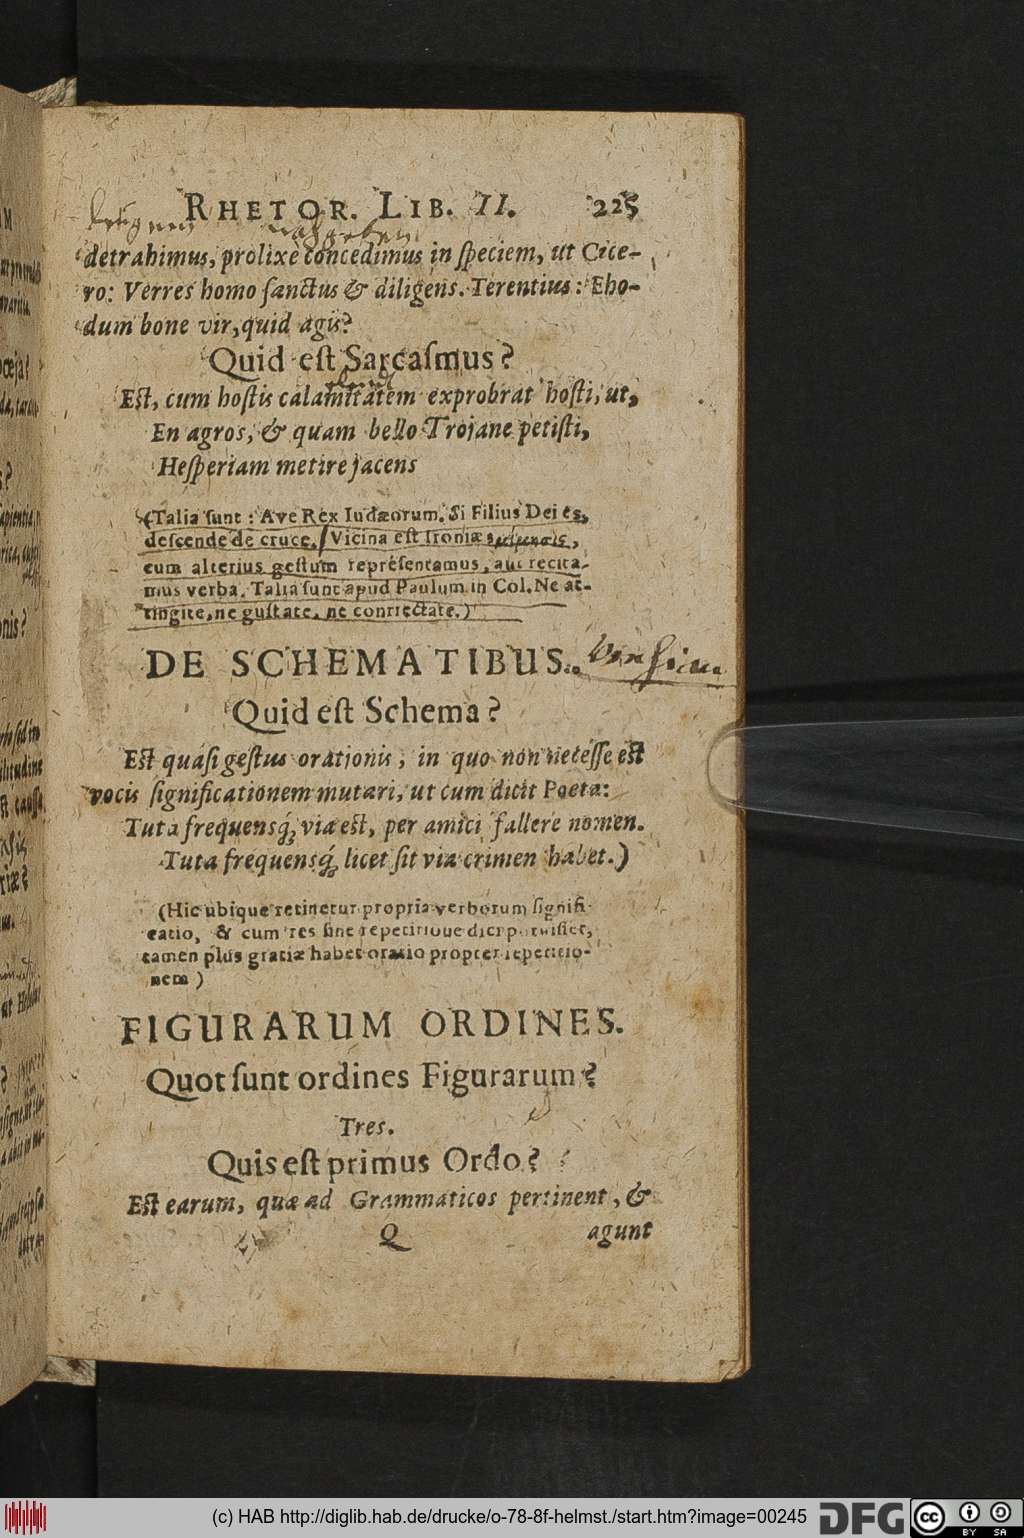 RHETOR. LIB. II. 225
detrahimus, prolixè concedimus in ſpeciem, ut Cice-
ro: Verres homo ſanctus & diligens. Terentius: Eho-
dum bone vir, quid agis?
Quid eſt Sarcaſmus?
Eſt, cum hoſtis calamitatem exprobrat hoſti, ut,
En agros, & quam bello Trojane petiſti,
Heſperiam metire jacens
(Talia ſunt: Ave Rex Iudæorum. Si Filius Dei es,
deſcende de cruce. Vicina eſt Ironiæ
cum alterius geſtum repræſentamus, aut recita-
mus verba. Talia ſunt apud Paulum in Col. Ne at-
tingite, ne guſtate, ne contrectate.)
DE SCHEMATIBUS.
Quid eſt Schema?
Eſt quaſi geſtus orationis, in quo non neceſſe eſt
vocis ſignificationem mutari, ut cum dicit Poeta:
Tuta frequensq́; via est, per amici fallere nomen.
Tuta frequensq́; licet ſit via crimen habet.)
(Hic ubique retinetur propria verborum ſignifi-
catio, & cum res ſine repetitione dici potuiſſet,
tamen plus gratiæ habet oratio propter repetitio-
nem)
FIGURARUM ORDINES.
Quot ſunt ordines Figurarum?
Tres.
Quis eſt primus Ordo?
Eſt earum, quæ ad Grammaticos pertinent, &
Q agunt
(c) HAB http://diglib.hab.de/drucke/o-78-8f-helmst./start.htm?image=00245
DFG
cc BY SA